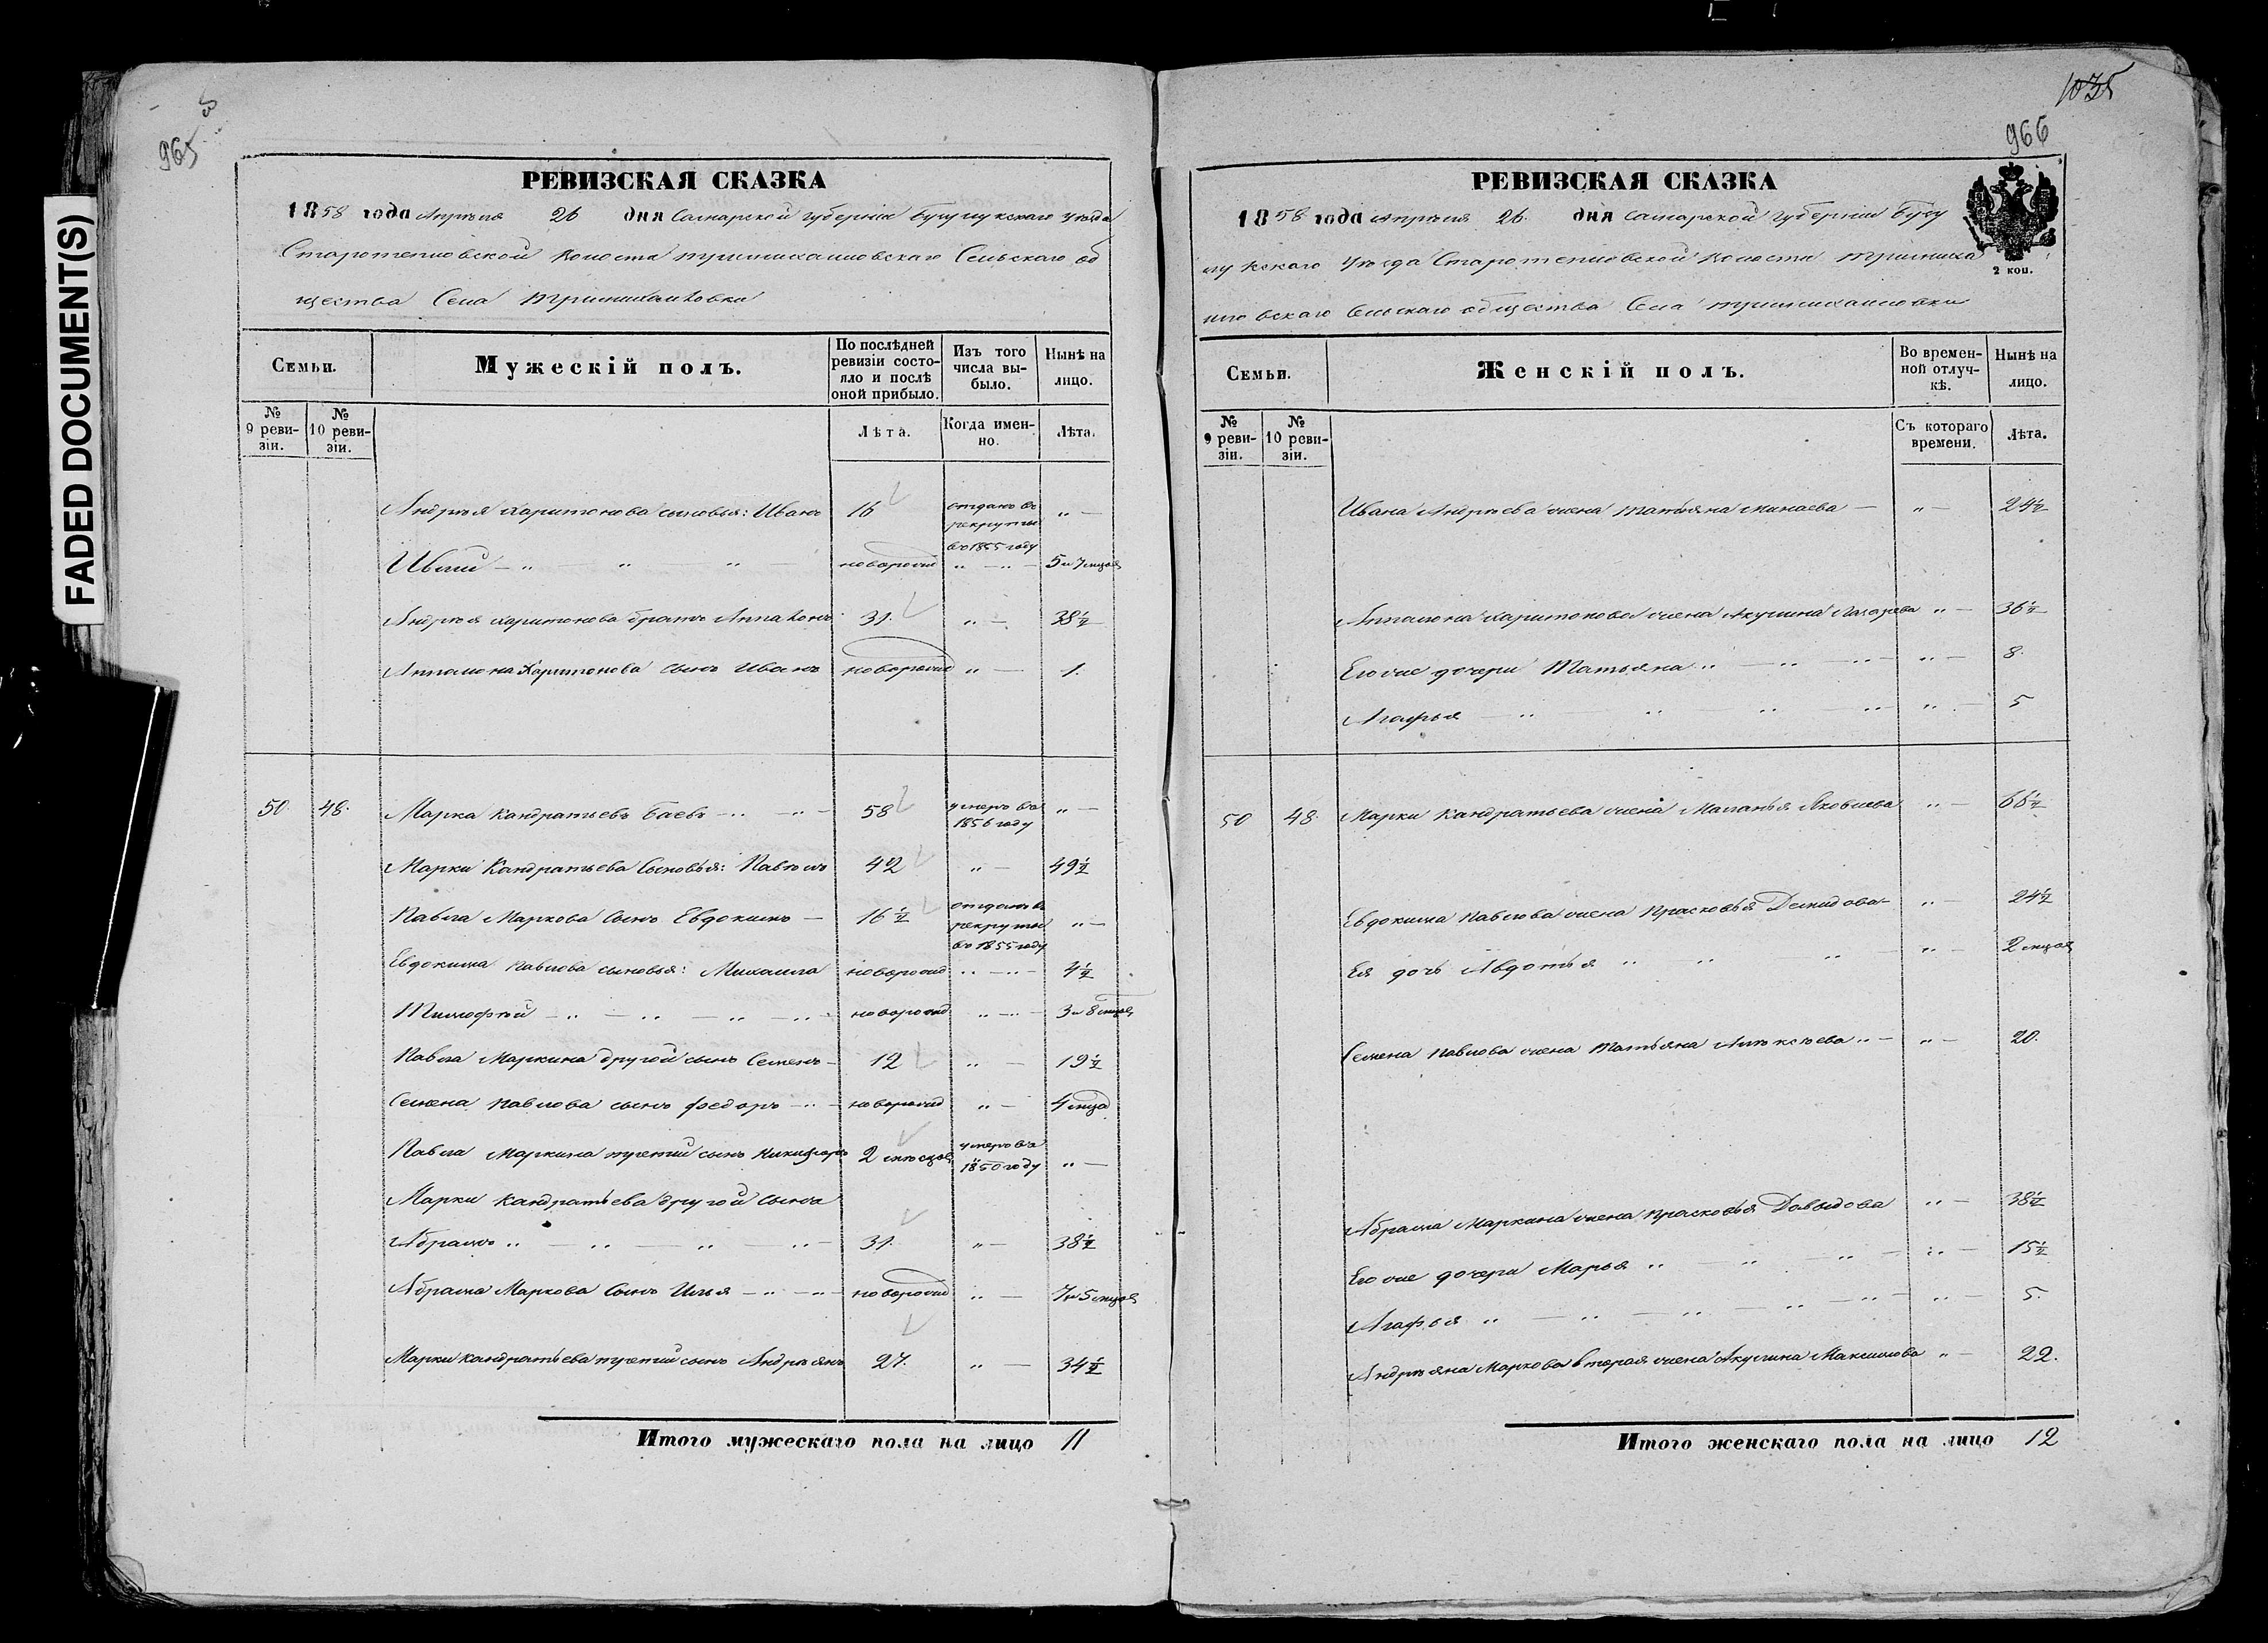 FADED DOCUMENT(S)
965
РЕВИЗСКАЯ СКАЗКА
1858 года Апреля 26 дня Самарской губернии Бугулукскаго уезда
волости Сельскаго об
щества Села
Семьи.
Мужескій полъ.
По послѣдней ревизіи состояло и послѣ оной прибыло.
Изъ того числа выбыло.
Нынѣ на лицо.
№ 9 ревизіи.
№ 10 ревизіи.
Лѣта.
Когда именно.
Лѣта.
Андрея Харитонова сыновья: Иванъ 16 отданъ въ рекруты въ 1855 году „ —
новорожд „ — „ — 5 и 7 мцовъ
Андрея Харитонова братъ Аппалонъ 31. „ — 38½
Аппалона Харитонова сынъ Иванъ новорожд „ — 1.
50. 48. Марка Кандратьевъ Баевъ — „ — „ — 58 умеръ въ 1856 году „ —
Марки Кандратьева Сыновья: Павелъ 42 „ — 49½
Павла Маркова Сынъ Евдокимъ — 16½ отданъ въ рекруты въ 1855 году „ —
Евдокима Павлова сыновья: Михаила новорожд „ — „ — 4½
Тимофей — „ — „ — „ — „ — новорожд „ — „ — 3 и 8 мцовъ
Павла Маркина другой сынъ Семенъ — 12 „ — 19½
Семена Павлова сынъ Федоръ — „ — новорожд „ — 4 мца
Павла Маркина третий сынъ Никифоръ 2 месяцовъ умеръ въ 1850 году „ —
Марки Кандратьева другой сынъ
Абрамъ „ — „ — „ — „ — 31. „ — 38½
Абрама Маркова Сынъ Илья — „ — „ — новорожд „ — 7 и 5 мцовъ
Марки Кандратьева третий сынъ Андреянъ 27. „ — 34½
Итого мужескаго пола на лицо 11
1035
966
РЕВИЗСКАЯ СКАЗКА
2 коп.
1858 года Апреля 26. дня Самарской губернии Бугу
лукскаго Уезда волости
Сельскаго общества Села
Семьи.
Женскій полъ.
Во временной отлучкѣ.
Нынѣ на лицо.
№ 9 ревизіи.
№ 10 ревизіи.
Съ котораго времени.
Лѣта.
Ивана Андреева жена Татьяна Минаева — „ — 24½
Аппалона Харитонова жена Акулина Лазарева „ — 36½
Его же дочери Татьяна „ — „ — „ — „ — 8.
Агафья — „ — „ — „ — „ — „ — 5
50 48. Марки Кандратьева жена Маланья Яковлева „ — 66½
Евдокима Павлова жена Прасковья Демидова — „ — 24½
Ея дочь Авдотья „ „ „ — „ — 2 мцовъ
Семена Павлова жена Татьяна Алексеева „ — „ — 20.
Абрама Маркина жена Прасковья Давыдова „ — 38½
Его же дочери Марья „ — „ — „ — „ — 15½
Агафья „ — „ — „ — „ — „ — „ — 5.
Андреяна Маркова вторая жена Акулина Максимова „ — 22.
Итого женскаго пола на лицо 12